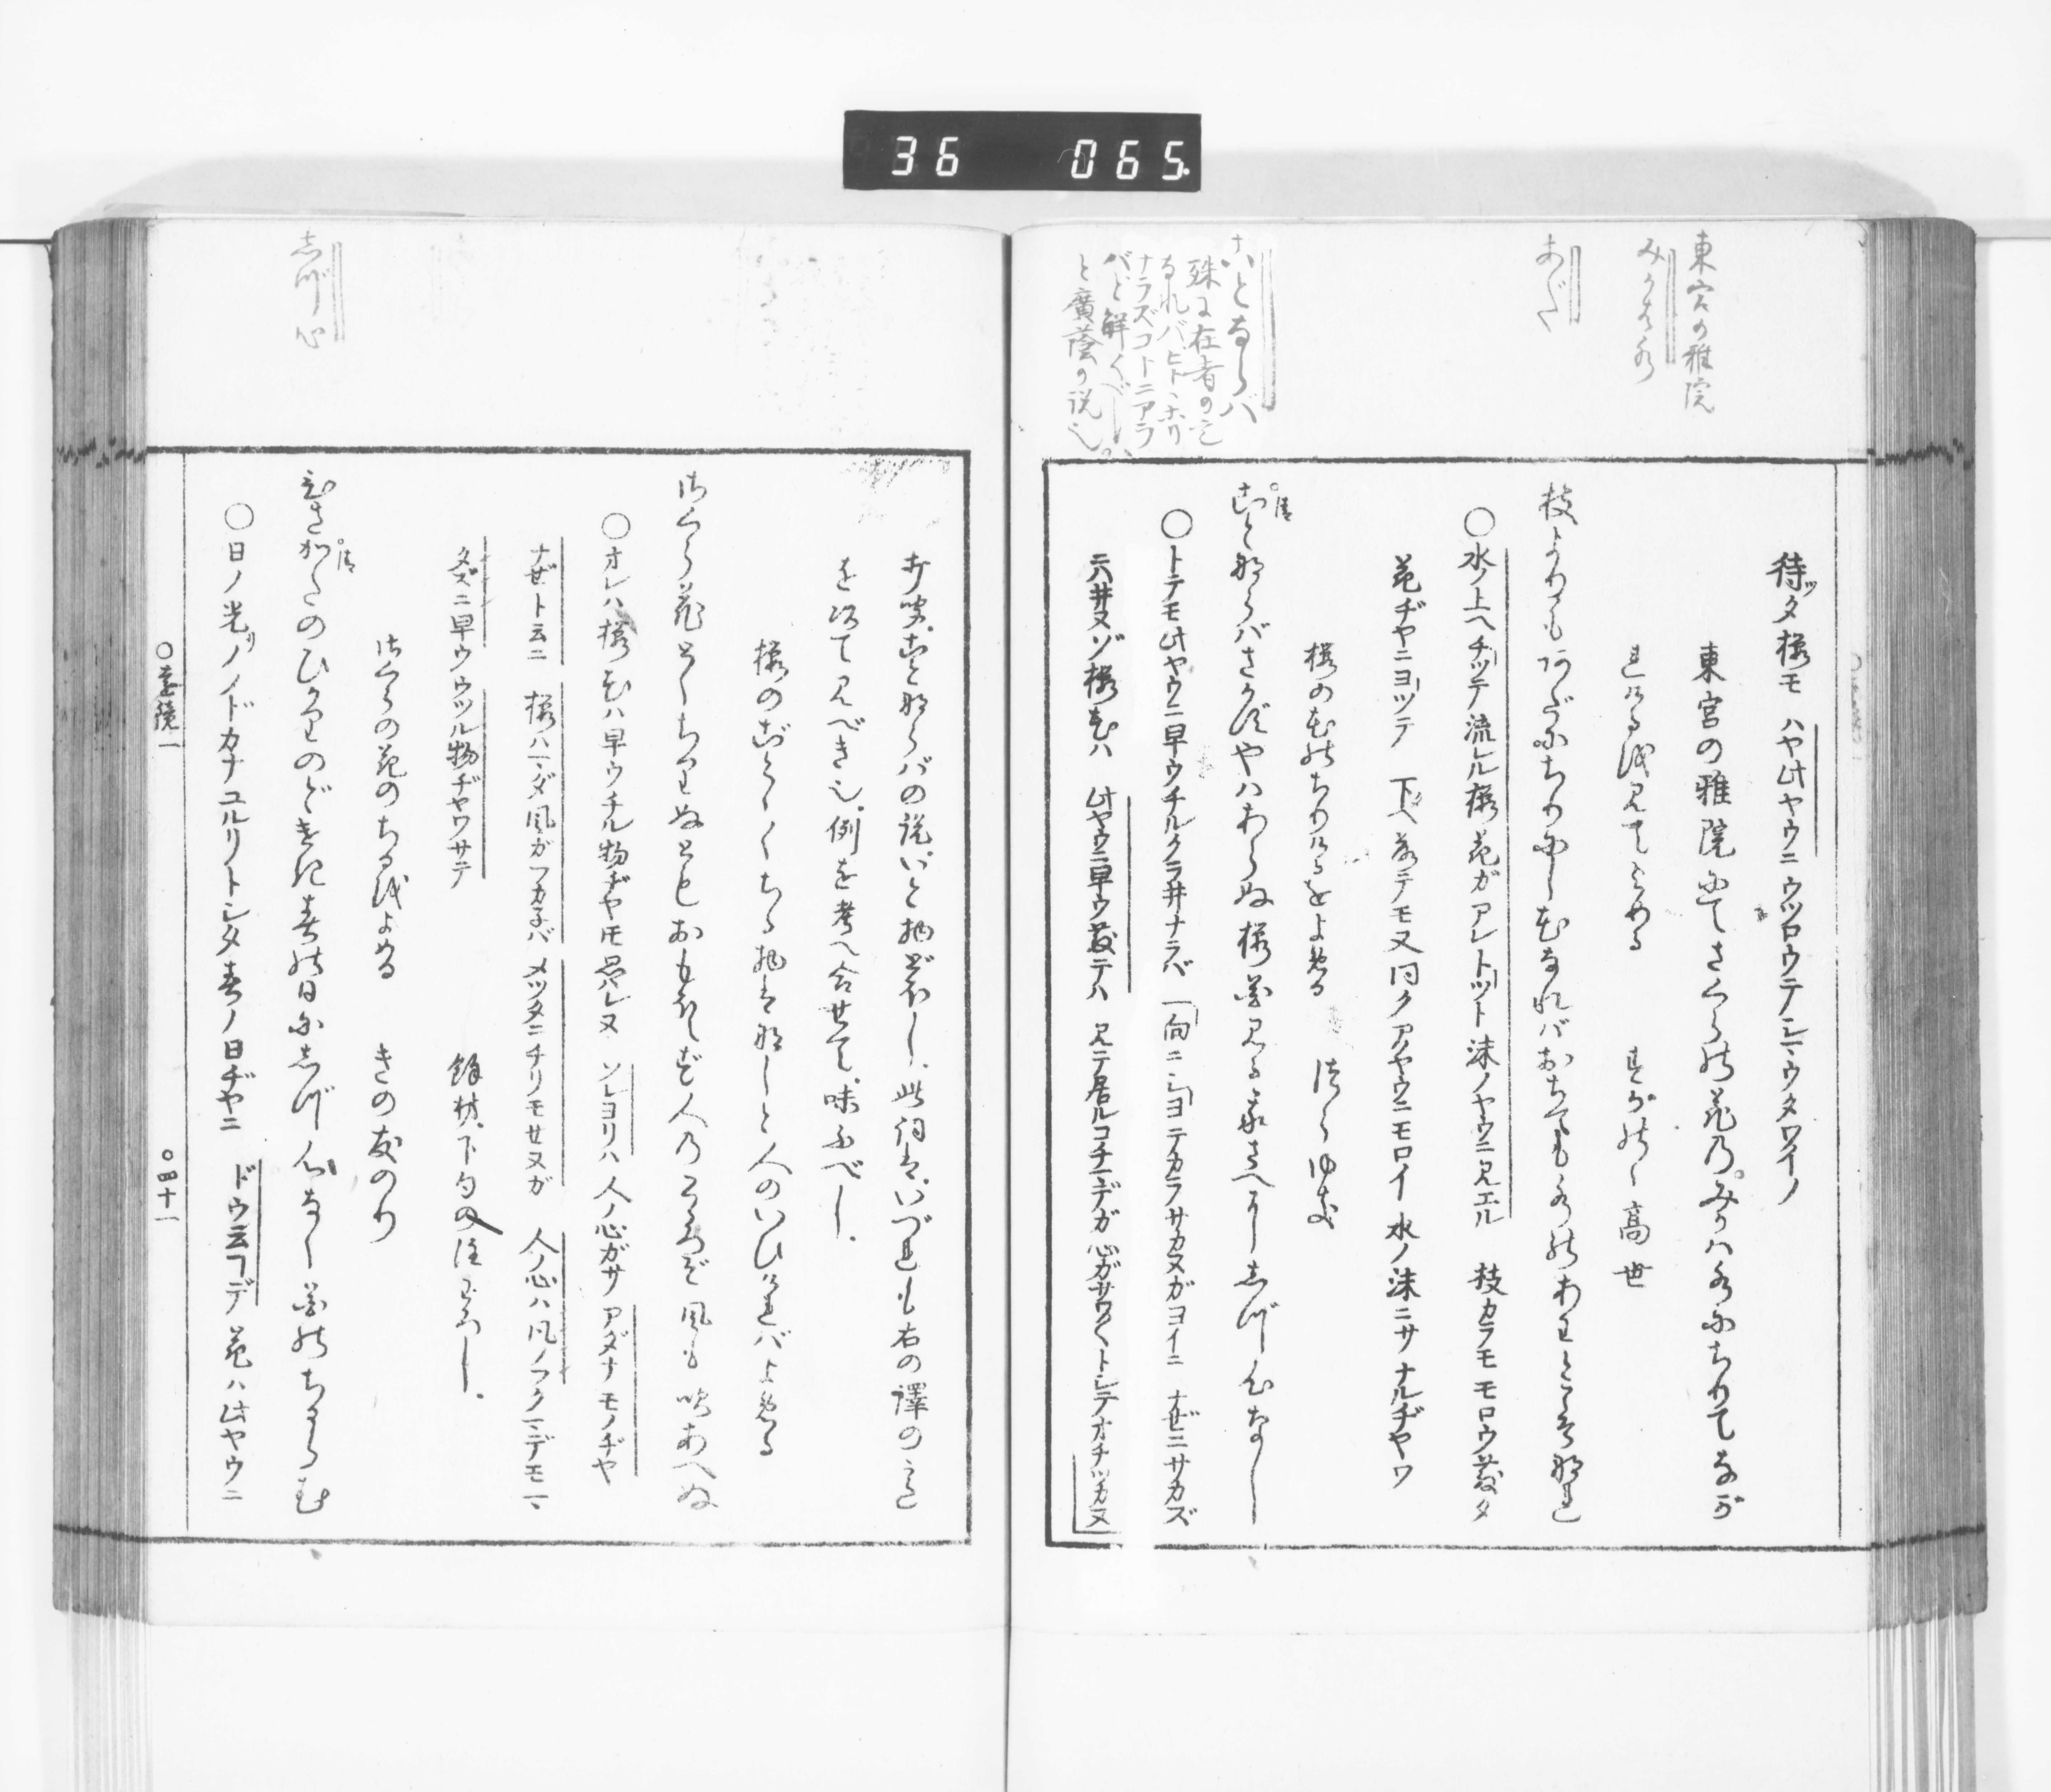 36 065
東宮の雅院
みかは水
あだ
ことならバ
待ッタ桜モ ハヤ此ヤウニ ウツロウテシマウタワイノ
東宮の雅院にてさくらの花の。みかハ水にちりてなが
れけるを見てよめる すがのゝ高世
枝よりもあだにちりにし花なれバおちても水のあわとこそなれ
○水ノ上ヘチッテ流レル桜花ガアレトット沫ノヤウニ見エル 枝カラモモロウ散タ
花ヂヤニヨッテ 下ヘ落テモ又同クアノヤウニモロイ水ノ沫ニサナルヂヤワ
桜の花のちりけるをよめる つらゆき
ことならバさかずやハあらぬ桜花見る我さへにしづ心なし
○トテモ此ヤウニ早ウチルクラヰナラバ 一向ニシヨテカラサカヌガヨイニ ナゼニサカズ
ニハ井ヌゾ桜花ハ 此ヤウニ早ウ散テハ 見テ居ルコチマデガ心ガサワ〳〵トシテオチツカヌ
志づ心
打聞、ことならバの説いと物どほし、此詞は、いづれも右の譯のこゝろ
を以て見べき也、例を考へ合せて、味ふべし、
桜のごとくちる物はなしと人のいひけれバよめる
さくら花とくちりぬともおもほえず人の心ぞ風も吹あへぬ
○オレハ桜花ハ早ウチル物ヂヤトモ思ハレヌ ソレヨリハ人ノ心ガサアダナモノヂヤ
ナゼト云ニ 桜ハマダ風ガフカネバ メッタニチリモセヌガ 人ノ心ハ風ノフクマデモマ
タズニ早ウウツル物ヂヤワサテ 餘材、下句の注わろし、
さくらの花のちるをよめる きの友のり
ひさかたのひかりのどけき春の日にしづ心なく花のちるらむ
○日ノ光リノノドカナユルリトシタ春ノ日ヂヤニ ドウ云フデ花ハ此ヤウニ
○遠鏡一 ○四十一